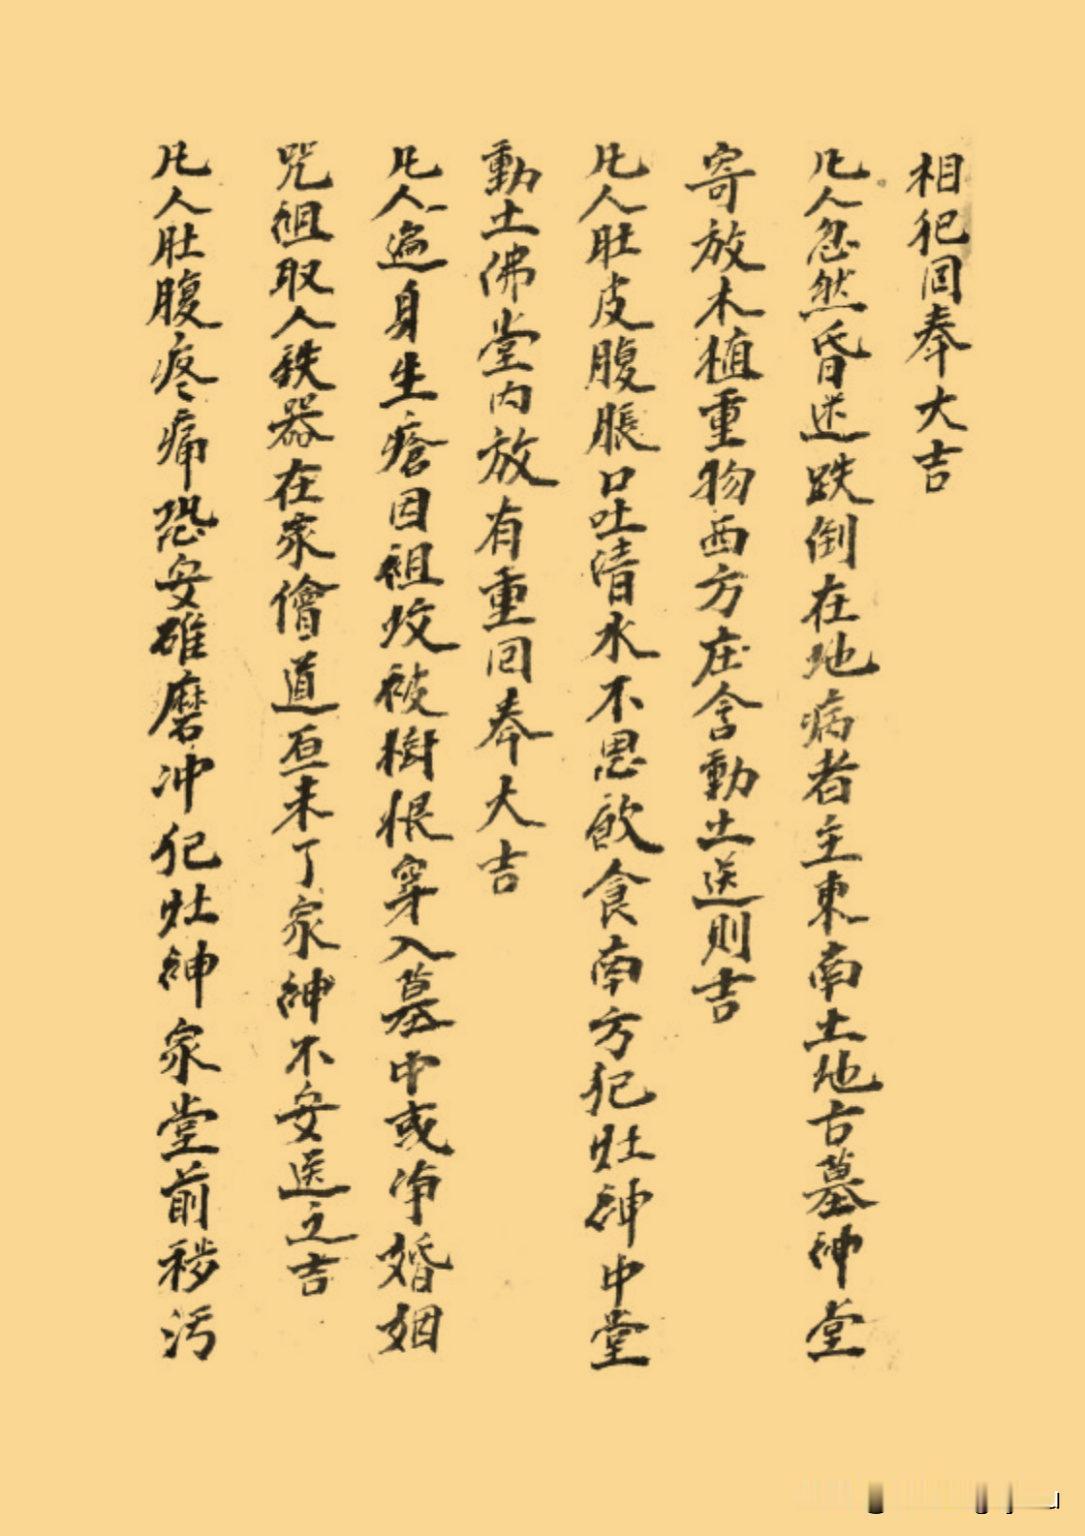 相犯回奉大吉
凡人忽然昏迷跌倒在地病者主東南土地古墓神堂
寄放木植重物西方庄舍動土送則吉
凡人肚皮腹脹口吐清水不思飲食南方犯灶神中堂
動土佛堂內放有重回奉大吉
凡人遍身生瘡因祖坟被樹根穿入墓中或净婚姻
咒詛取人鉄器在家僧道愿未了家神不安送之吉
凡人肚腹疼痛恐安碓磨冲犯灶神家堂前穢汚